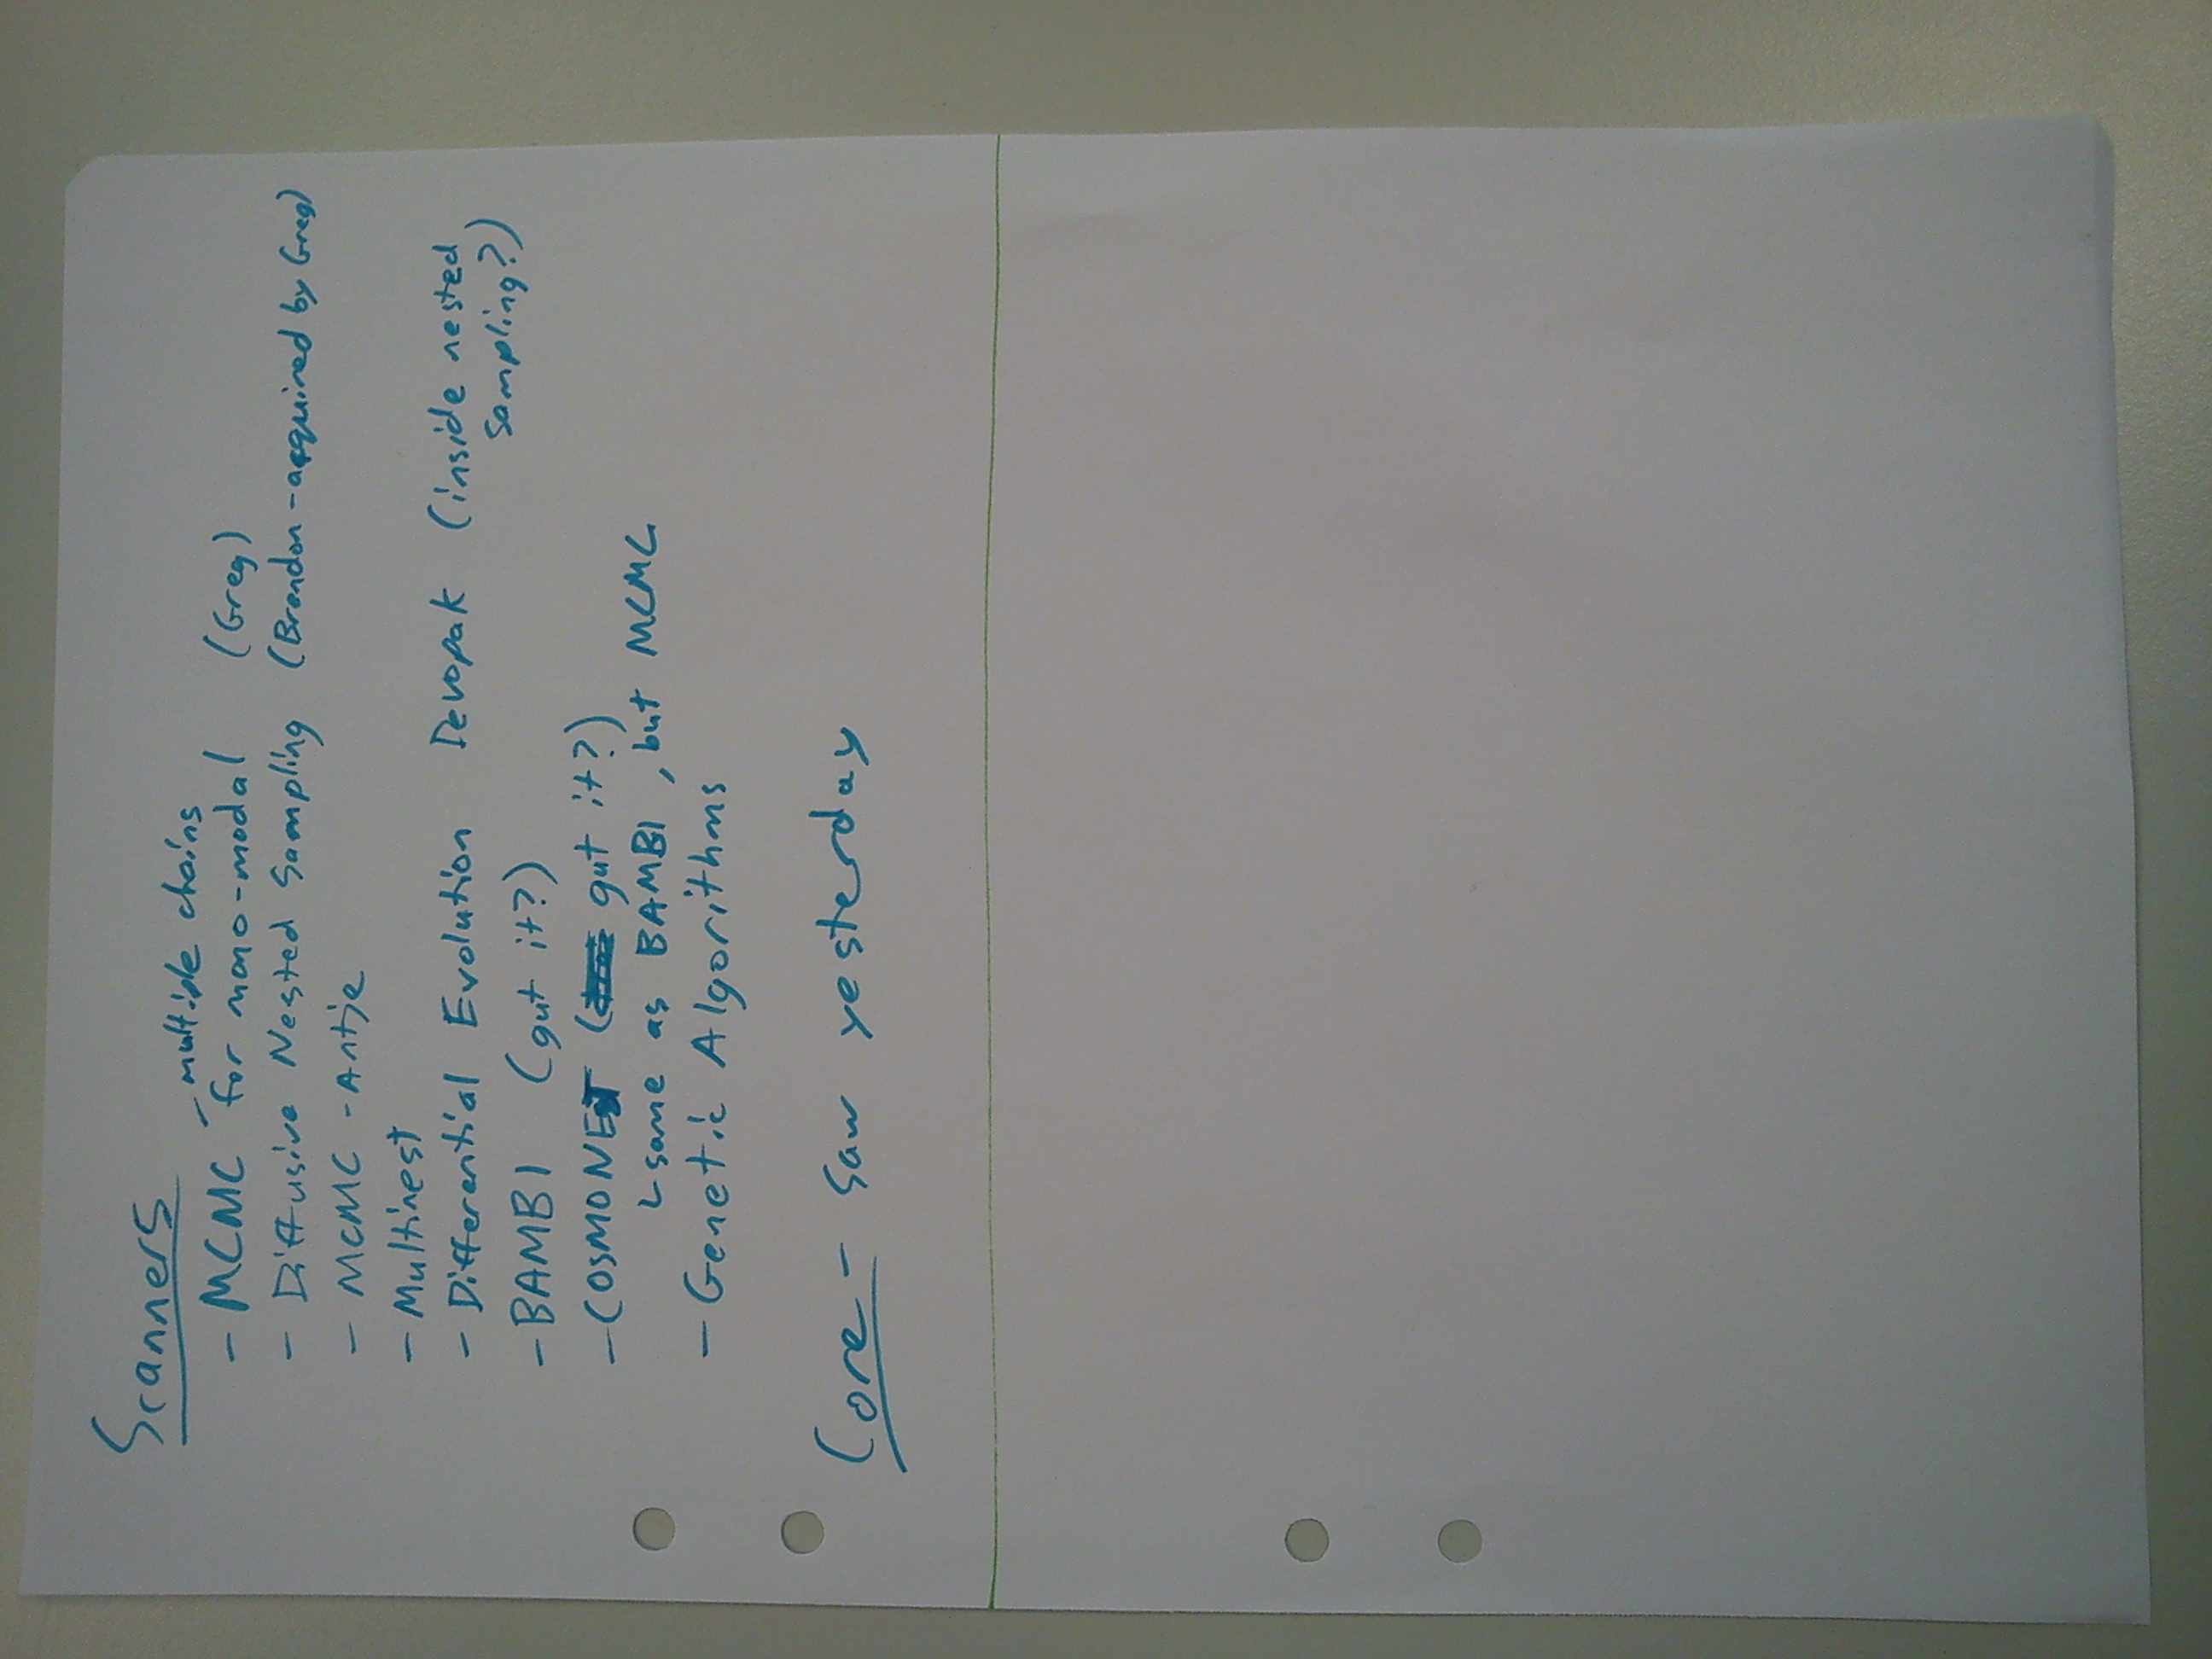 Scanners
- multiple chains
- MCMC for mono-modal (Greg)
- Diffusive Nested Sampling (Brendon - acquired by Greg)
- MCMC - Antje
- Multinest
- Differential Evolution Devopak (inside nested
sampling?)
- BAMBI (gut it?)
- COSMONET ( gut it?)
↳ same as BAMBI, but MCMC
- Genetic Algorithms
Core - saw yesterday